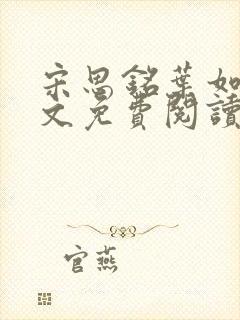 宋思銘葉如
文免費閱讀
官燕